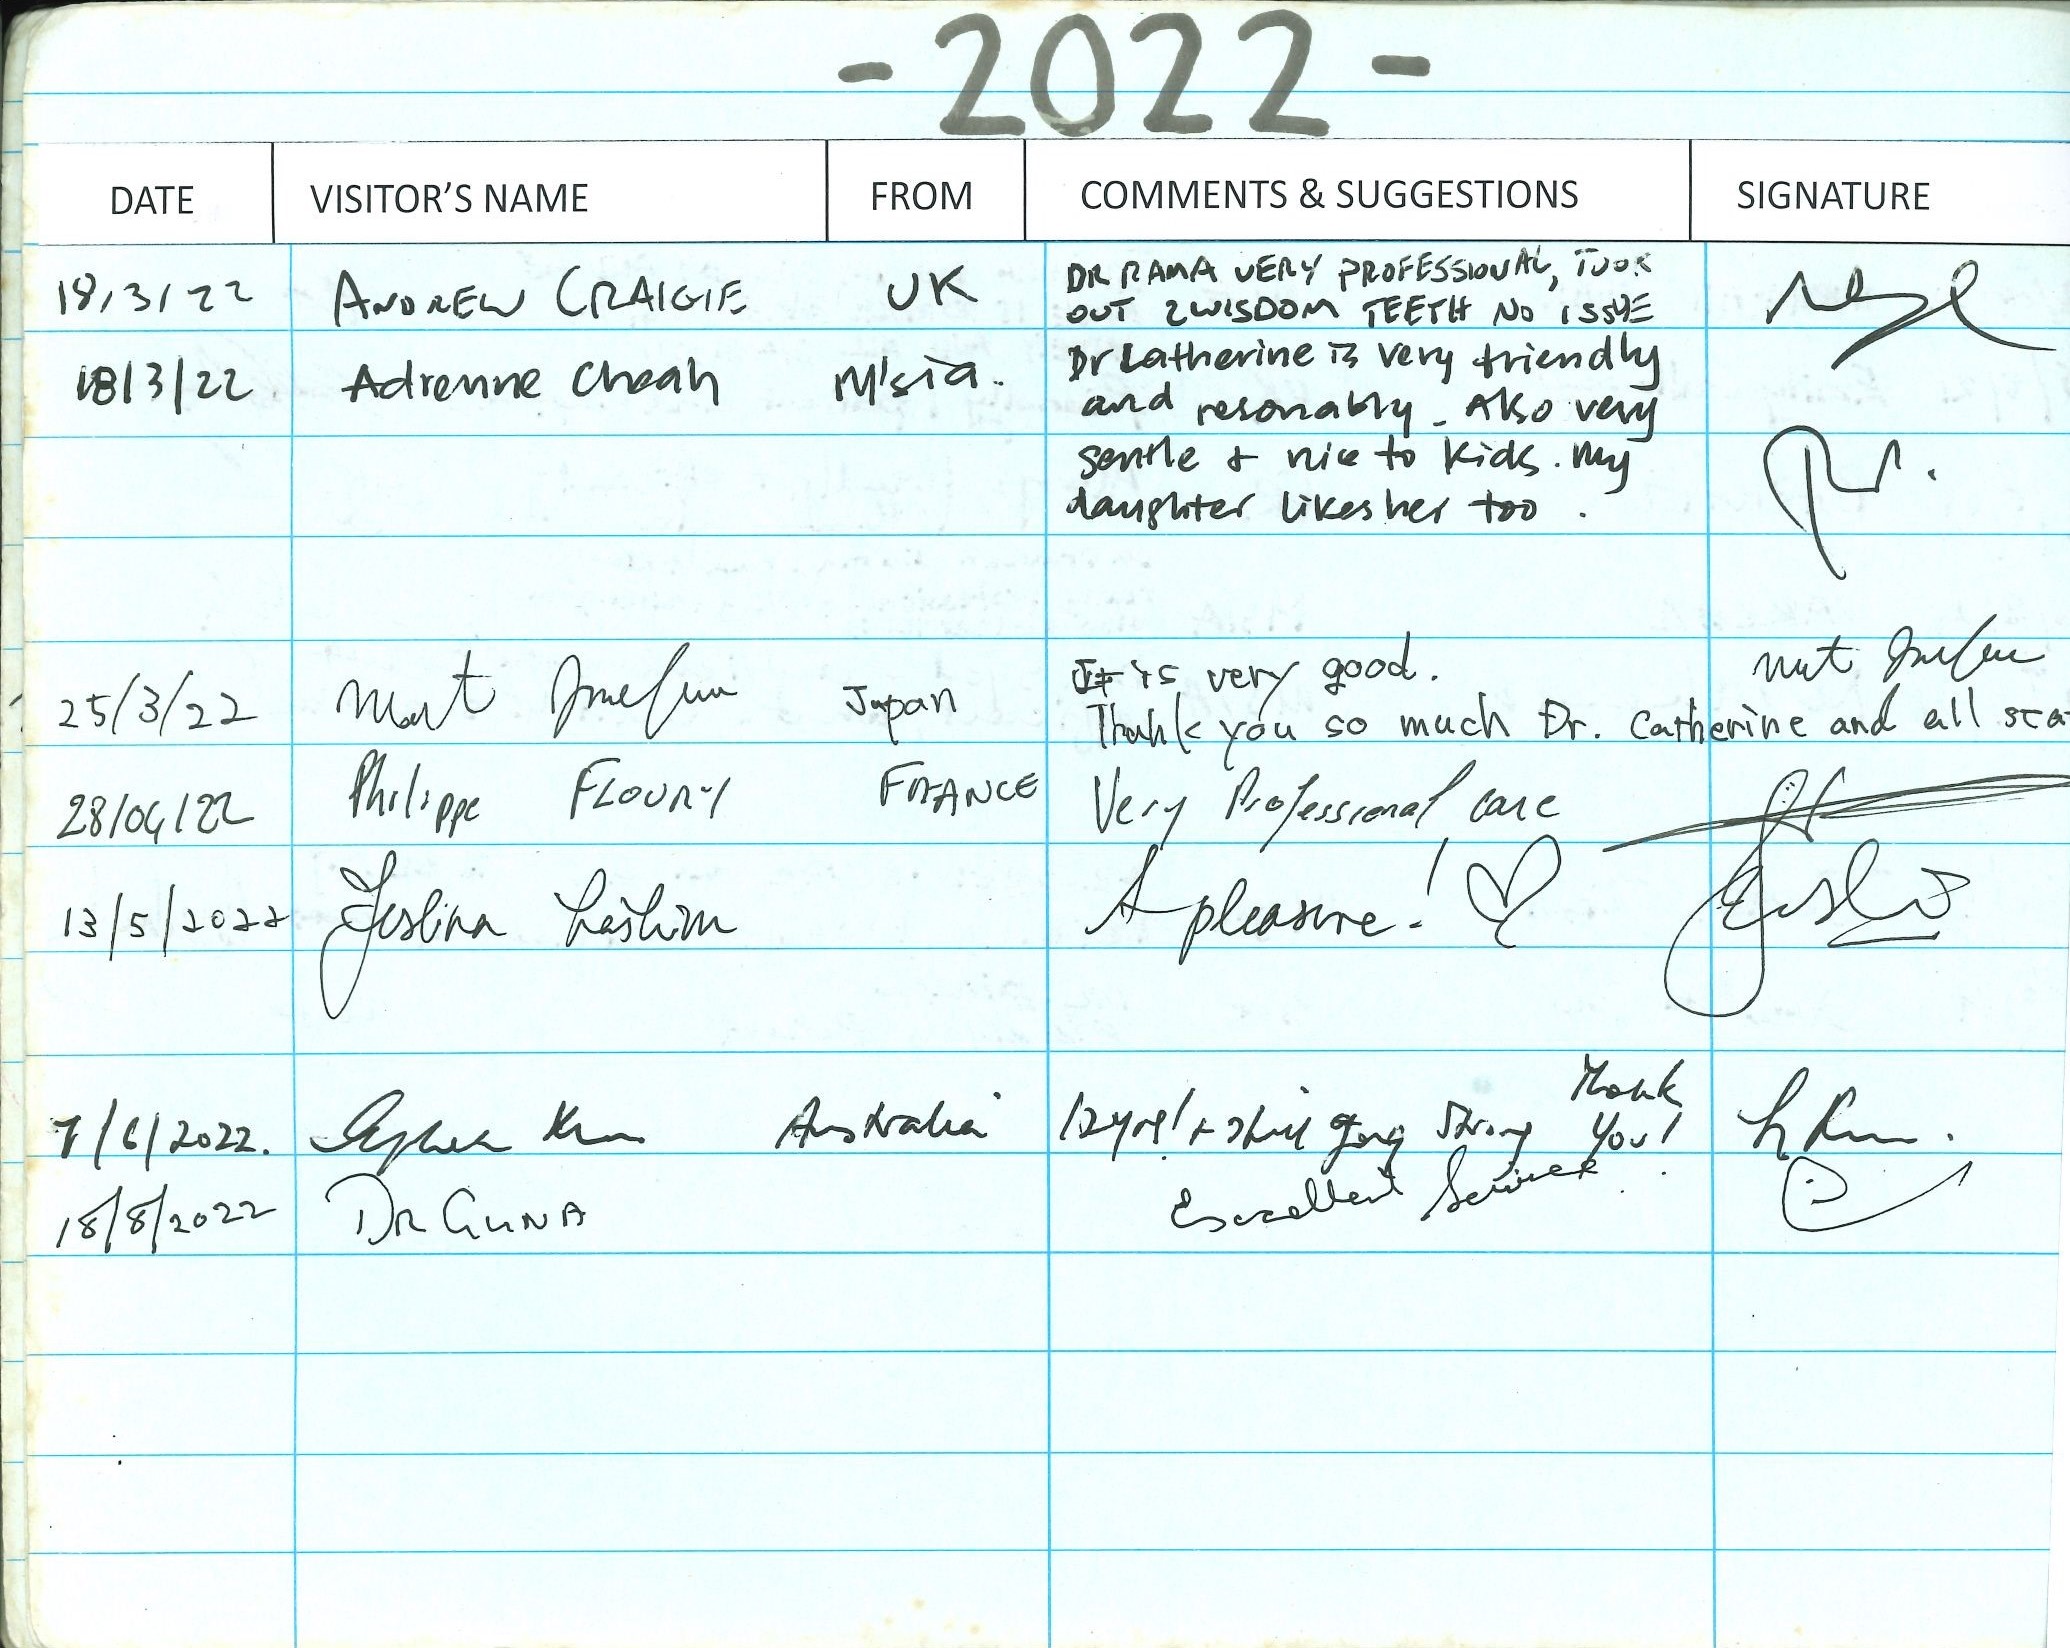 -2022-
DATE VISITOR'S NAME FROM COMMENTS & SUGGESTIONS SIGNATURE
18/3/22 ANDREW CRAIGIE UK DR RAMA VERY PROFESSIONAL, TOOK
OUT 2 WISDOM TEETH NO ISSUE
18/3/22 Adrenne Cheah M'sia. Dr Catherine is very friendly
and resonably. Also very
gentle & nice to kids. My
daughter likes her too.
25/3/22 Japan It is very good.
Thank you so much Dr. Catherine and all sta
28/04/22 Philippe FLOURY FRANCE Very Professional care
13/5/2022 A pleasure!
7/6/2022. Australia 12 yrs! + still going strong Thank
You!
18/8/2022 DR GUNA Excellent Service